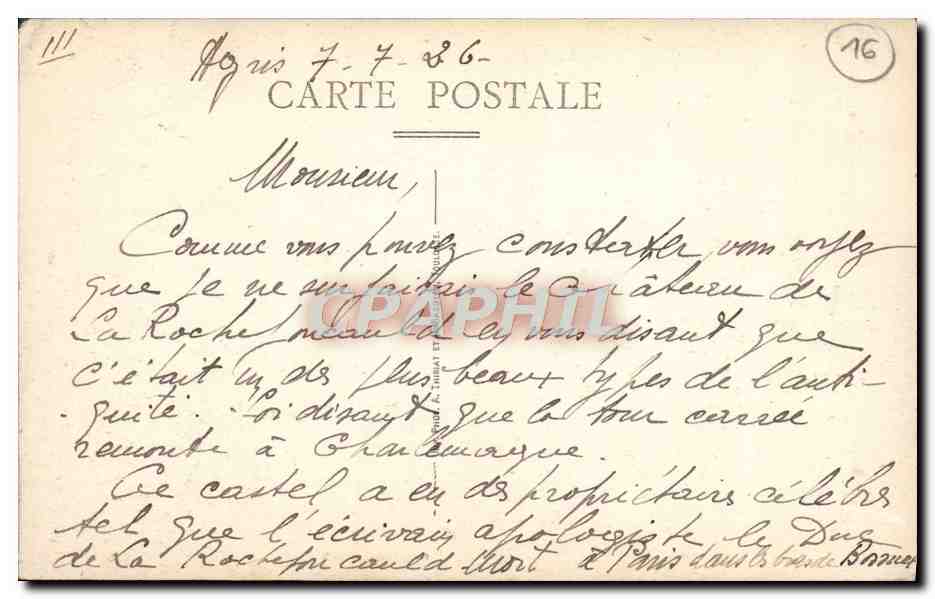 III
16
Agris 7-7-26-
CARTE POSTALE
Monsieur,
Comme vous pouvez constater, vous voyez
que je ne surfaisais le Château de
La Rochefoucauld en vous disant que
c'était un des plus beaux types de l'anti-
quité. Soi disant que la tour carrée
remonte à Charlemagne.
Ce castel a eu des propriétaires célèbres
tel que l'écrivain apologiste le Duc
de La Rochefoucauld Mort à Paris dans les bras de Bossuet
PHOT. A. THIRIAT ET TOULOUSE
CPAPHIL